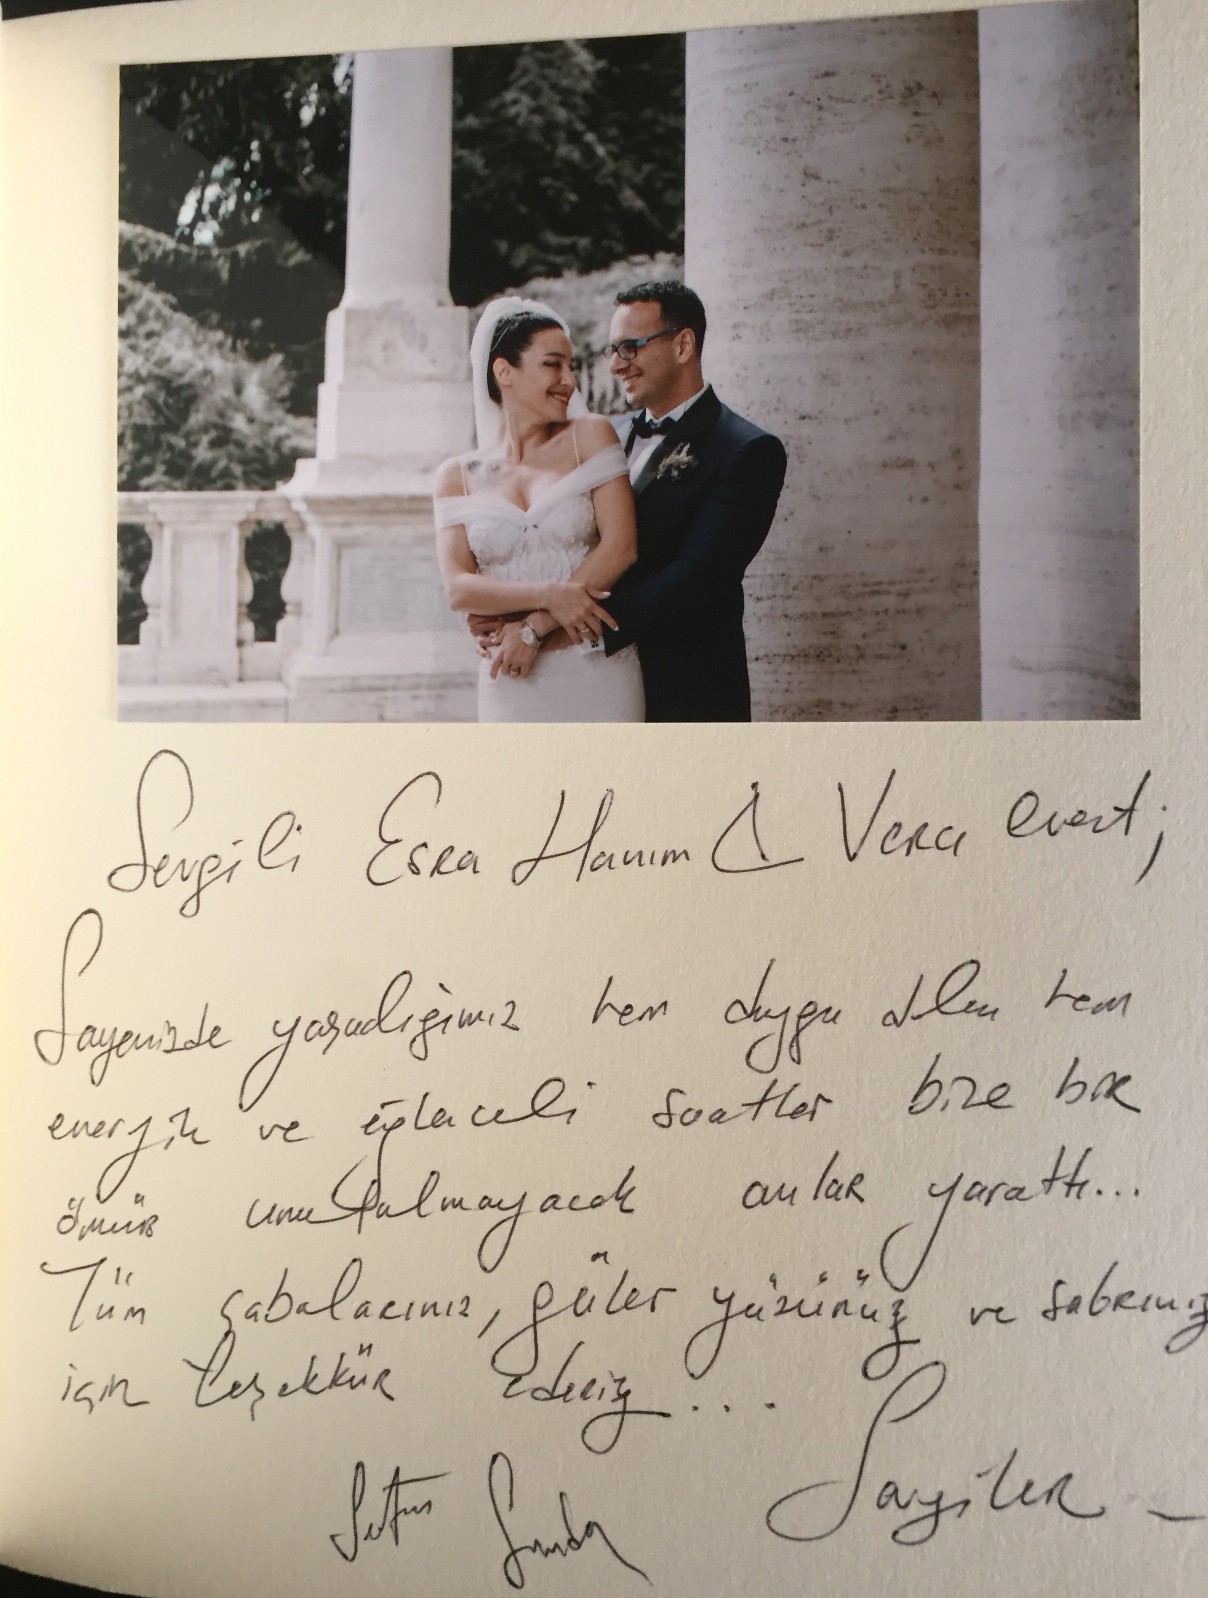 Sevgili Esra Hanım & Vera event;
Sayenizde yaşadığımız hem duygu dolu hem
enerjik ve eğlenceli saatler bize bir
ömür unutulmayacak anlar yarattı...
Tüm çabalarınız, güler yüzünüz ve sabrınız
için teşekkür ederiz...
Saygılar